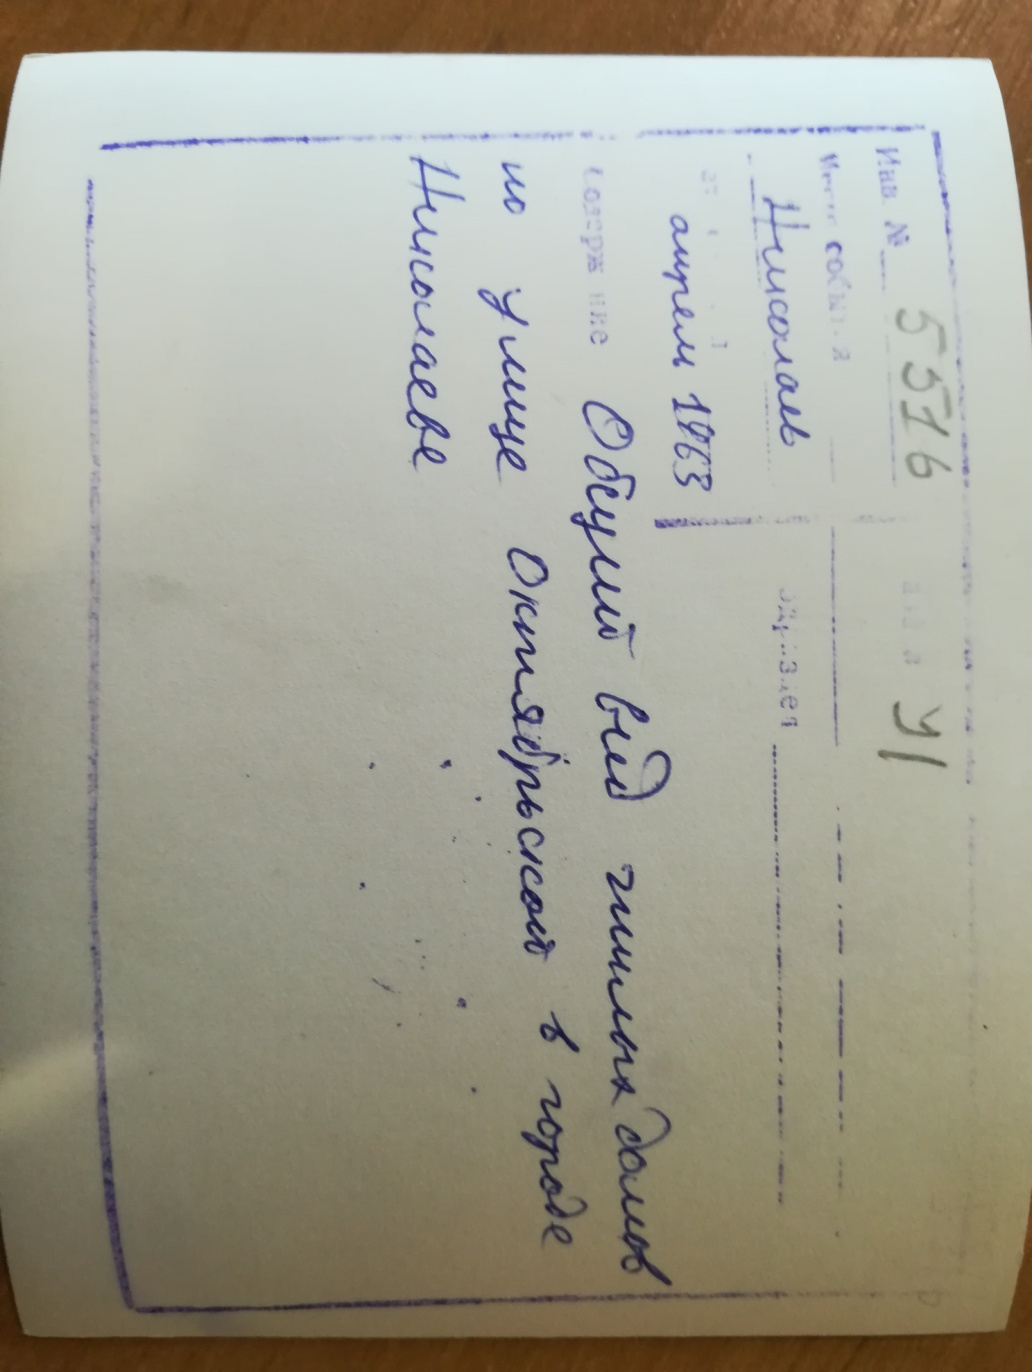 Инв. № 5576 У1
Место события
Николаев
апрель 1963
Содержание Общий вид жилых домов
по улице Октябрьской в городе
Николаеве